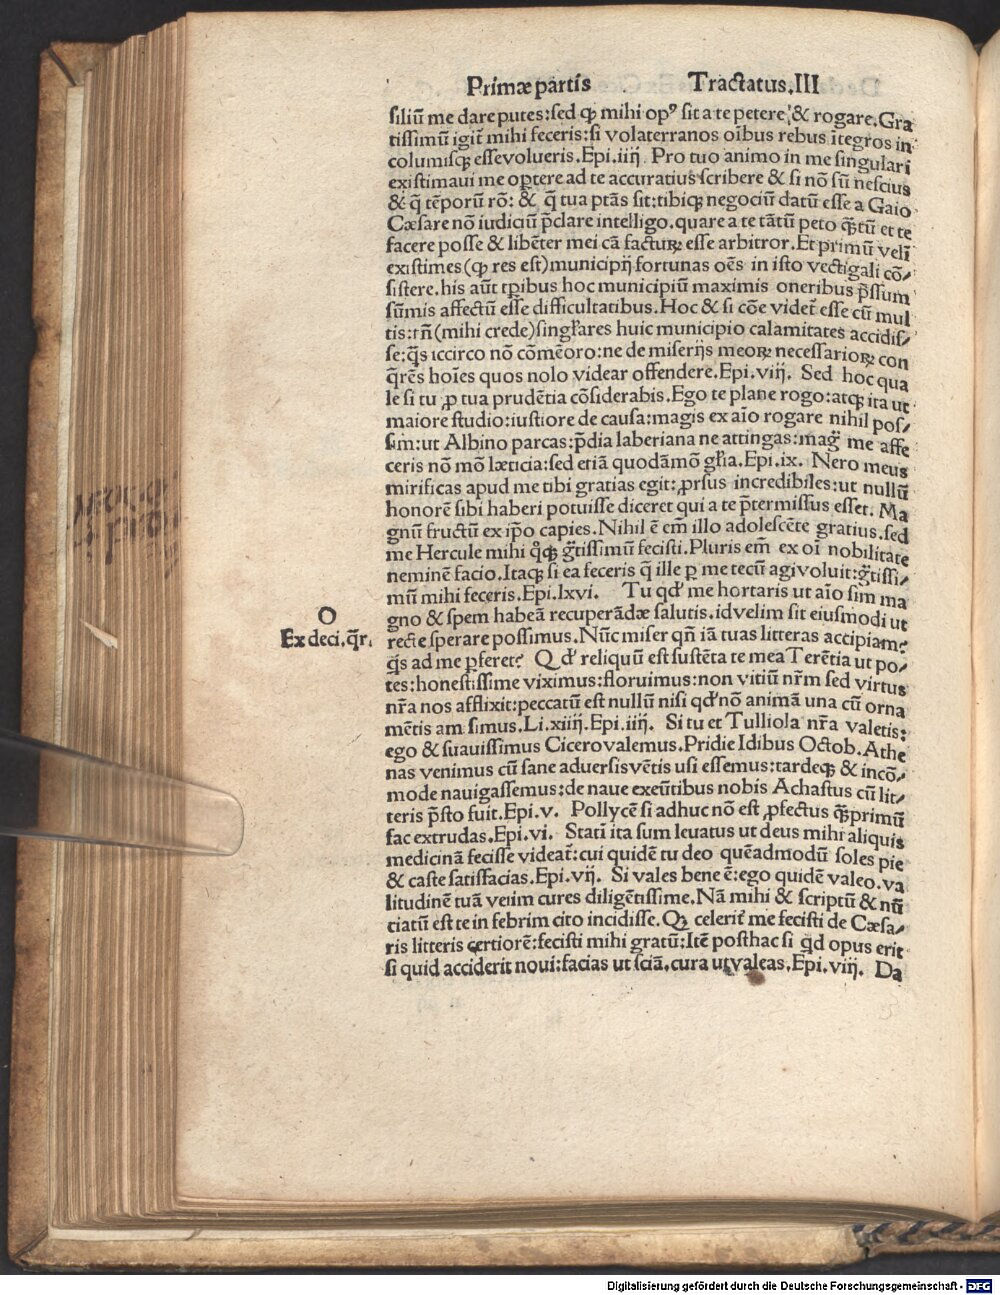 Primæ partis Tractatus.III
siliū me dare putes:sed ꝙ mihi opꝰ sit a te petere/& rogare.Gra
tissimū igit᷑ mihi feceris:si volaterranos oībus rebus ītegros in
columisqꝫ esse volueris.Epi.iiij Pro tuo animo in me singulari
existimaui me oꝑtere ad te accuratius scribere & si nō sū nescius
& q̄ tēporū rō: & q̄ tua ptās sit:tibiqꝫ negociū datū esse a Gaio
Cæsare nō iudiciū p̄clare intelligo.quare a te tātū peto q̄tū et te
facere posse & libēter mei cā facturꝝ esse arbitror.Et primū velī
existimes(ꝙ res est)municipij fortunas oēs in isto vectigali cō/
sistere.his aūt tꝑibus hoc municipiū maximis oneribus p̄ssum
sūmis affectū esse difficultatibus.Hoc & si cōe videt᷑ esse cū mul
tis:tn̄(mihi crede)singl̄ares huic municipio calamitates accidis/
se:q̄s iccirco nō cōmēoro:ne de miserijs meorꝝ necessariorꝝ con
q̄rēs hoīes quos nolo videar offendere.Epi.viij. Sed hoc qua
le si tu ꝓ tua prudētia cōsiderabis.Ego te plane rogo:atqꝫ ita ut
maiore studio:iustiore de causa:magis ex aīo rogare nihil pos/
sim:ut Albino parcas:p̄dia laberiana ne attingas:mag̃ me affe
ceris nō mō læticia:sed etiā quodāmō gl̄ia.Epi.ix. Nero meus
mirificas apud me tibi gratias egit:ꝓrsus incredibiles:ut nullū
honorē sibi haberi potuisse diceret qui a te p̄termissus esset. Ma
gnū fructū ex ip̄o capies.Nihil ē em̄ illo adolescēte gratius.sed
me Hercule mihi qͦqꝫ g̃tissimū fecisti.Pluris em̄ ex oī nobilitate
neminē facio.Itaqꝫ si ea feceris q̄ ille ꝑ me tecū agi voluit:g̃tissi/
mū mihi feceris.Epi.lxvi. Tu qd' me hortaris ut aīo sim ma
gno & spem habeā recuperādæ salutis.id velim sit eiusmodi ut
O
Ex deci.q̄r.
recte sperare possimus.Nūc miser qn̄ iā tuas litteras accipiam?
q̄s ad me ꝑferet? Qd' reliquū est sustēta te mea Terētia ut po/
tes:honestissime viximus:floruimus:non vitiū nr̄m sed virtus
nr̄a nos afflixit:peccatū est nullū nisi qd' nō animā una cū orna
mētis amisimus.Li.xiiij.Epi.iiij. Si tu et Tulliola nr̄a valetis:
ego & suauissimus Cicero valemus.Pridie Idibus Octob.Athe
nas venimus cū sane aduersis vētis usi essemus:tardeqꝫ & incō/
mode nauigassemus:de naue exeūtibus nobis Achastus cū lit/
teris p̄sto fuit.Epi.v. Pollycē si adhuc nō est ꝓfectus q̄primū
fac extrudas.Epi.vi. Statī ita sum leuatus ut deus mihi aliquis
medicinā fecisse videat᷑:cui quidē tu deo quēadmodū soles pie
& caste satisfacias.Epi.vij. Si vales bene ē:ego quidē valeo.va
litudinē tuā velim cures diligētissime.Nā mihi & scriptū & nū
ciatū est te in febrim cito incidisse.Qꝫ celerit᷑ me fecisti de Cæsa/
ris litteris certiorē:fecisti mihi gratū:Itē posthac si qd opus erit
si quid acciderit noui:facias ut sciā.cura ut valeas.Epi.viij. Da
Digitalisierung gefördert durch die Deutsche Forschungsgemeinschaft - DFG